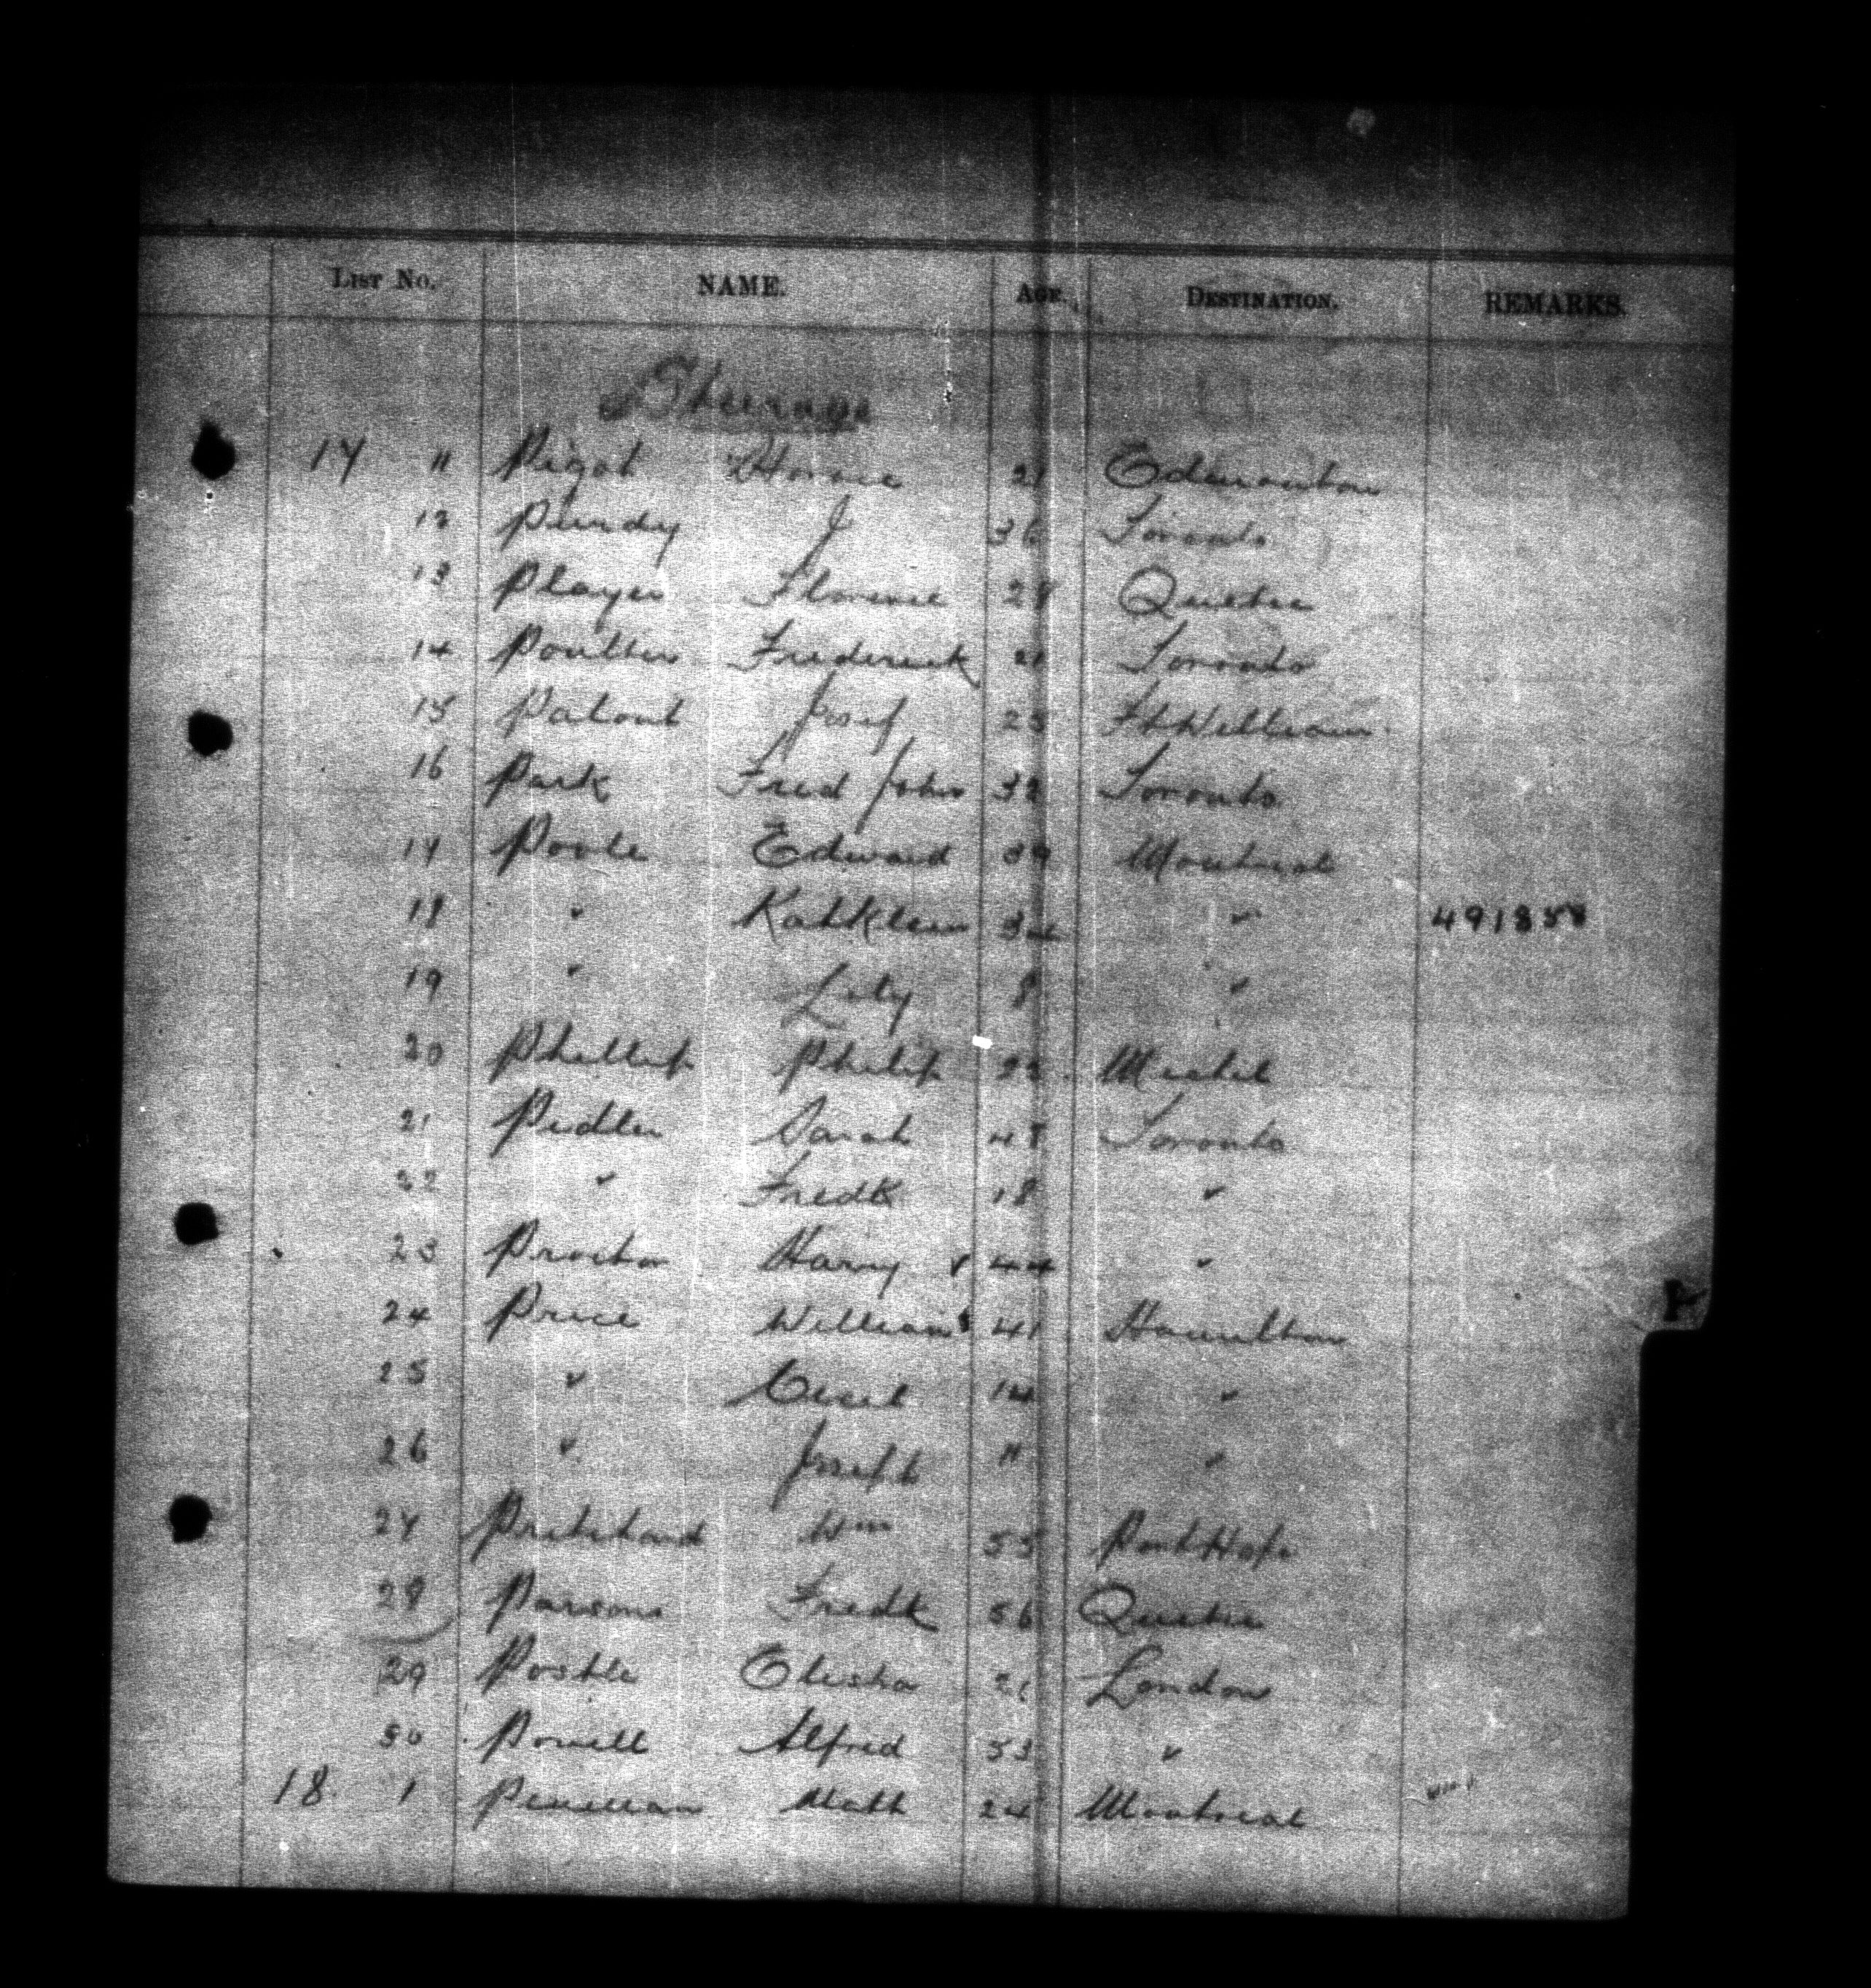 LIST NO. NAME. AGE. DESTINATION. REMARKS.
Steerage
17 11 Pigot Horace 21 Edmonton
12 Purdy J 36 Toronto
13 Player Florence 27 Quebec
14 Poulter Frederick 21 Toronto
15 Josef 25 Ft William
16 Park Fred John 32 Toronto
17 Poole Edward 39 Montreal
18 " Kathleen " 491858
19 " Lily 8 "
20 Phillip Philip 22 Michel
21 Pedler Sarah 48 Toronto
22 " Fredk 18 "
23 Proctor Harry 44 "
24 Price William 41 Hamilton
25 " Cecil 14 "
26 " Joseph 11 "
27 Pritchard Wm 55 Port Hope
28 Parsons Fredk 56 Quebec
29 Postle Elisha 21 London
30 Powell Alfred 53 "
18. 1 Math 24 Montreal
P